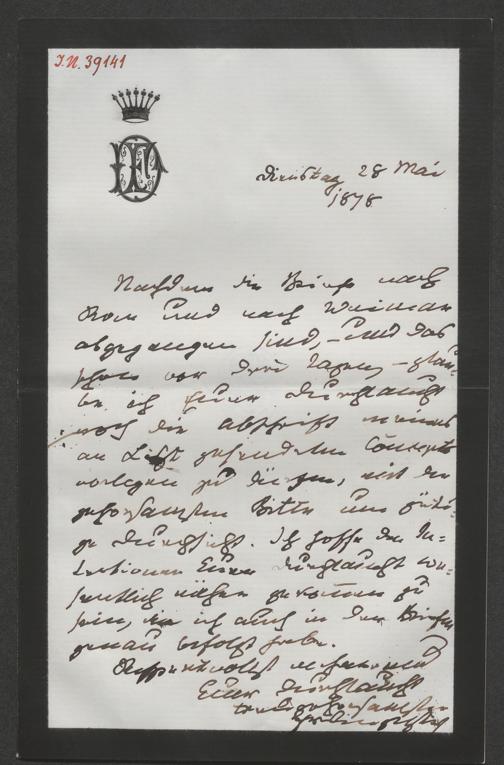 I.N. 39141
Dienstag 28 Mai
1878
Nachdem die Briefe nach
Rom und nach Weimar
abgegangen sind, – und das
schon vor drei Tagen, – glau-
be ich Euer Durchlaucht
noch die Abschrift meines
an Liszt gesendeten Concepts
vorlegen zu dürfen, mit der
gehorsamsten Bitte um güti-
ge Durchsicht. Ich hoffe den In-
tentionen Eurer Durchlaucht we-
sentlich näher gekommen zu
sein, die ich auch in den Briefen
genau befolgt habe.
Respektvollst verharrend
Euer Durchlaucht